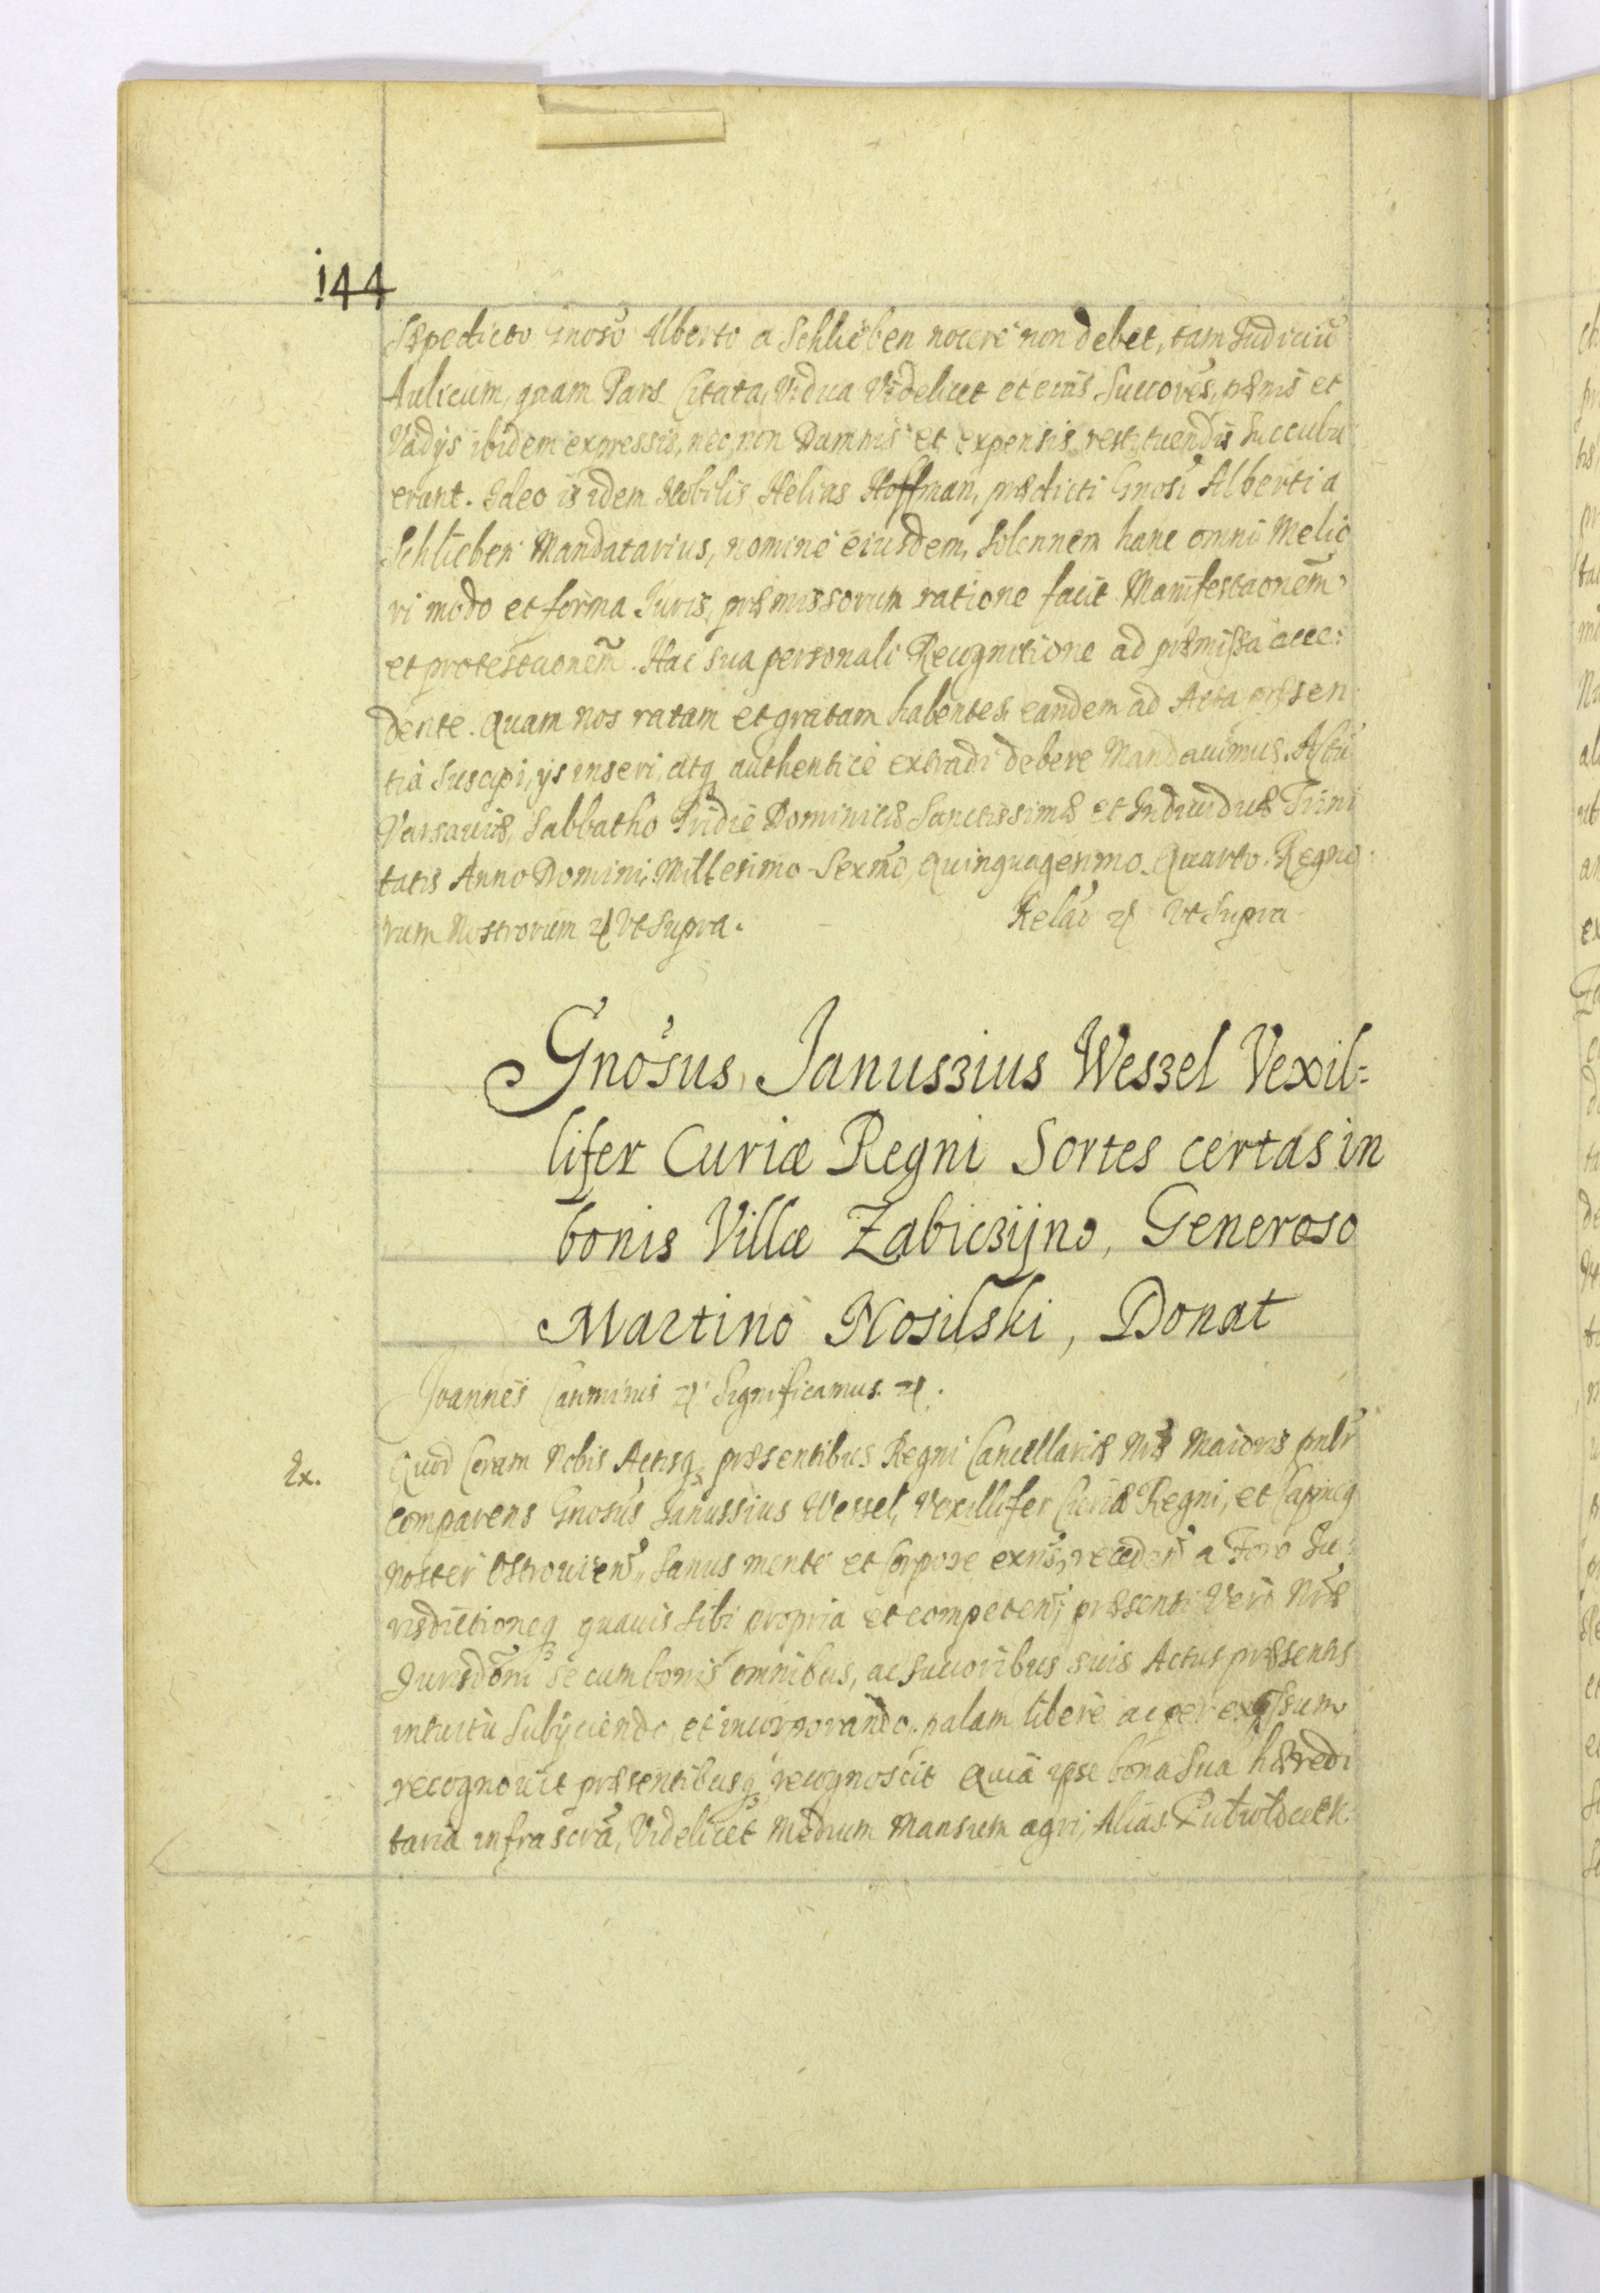 144
Sæpedicto Gnoso Alberto a Schlieben nocere non debet, tam Judiciũ
Aulicum, quam Pars Citata, Vidua Videlicet et eius Succores, pænis et
Vadÿs ibidem expressis, nec non Damnis et expensis restituendis Succubu
erunt. Ideo is idem Nobilis Helias Hoffman, prædicti Gnosi Alberti a
Schlieben Mandatarius, nomine eiusdem, Solennem hanc omni Melio
ri modo et forma Iuris, præmissorum ratione facit Manifestaonem
et protestaonem. Hac sua personali Recognitione ad præmissa acce:
dente. Quam nos ratam et gratam habentes eandem ad Acta præsen
tia Suscipi, ÿs inseri, atq authentice extradi debere Mandauimus. Actũ
Varsauiæ, Sabbatho Pridie Dominicæ Sanctissimæ et Indiuiduæ Trini
tatis Anno Domini Millesimo Sexmo, Quinquagesimo Quarto. Regno
rum Nostrorum Vt Supra. Relaõ Vt Supra
Gnosus Januszius Weszel Vexil=
lifer Curiæ Regni Sortes certas in
bonis Villæ Zabiczÿno, Generoso
Martino Nosilski, Donat
Joannes Casimirus Significamus
Ex. Quod Coram Nobis Actisq præsentibus Regni Cancellariæ Nræ Maioris pnlr
comparens Gnosus Janussius Wessel, Vexillifer Curiæ Regni, et Capneq
Noster Ostrouien, Sanus mente et Corpore exñs, receden a Foro Ju
risdictioneq quauis Sibi propria et competen, præsenti Vero Nræ
Jurisdoni se cum bonis omnibus, ac Succoribus suis Actus præsentis
intuitu Subÿciendo, et incorporando, palam libere ac per expssum
recognouit præsentibusq recognoscit Quia ipse bona Sua hæredi
taria infrascra, Videlicet Medium Mansum agri, Alias